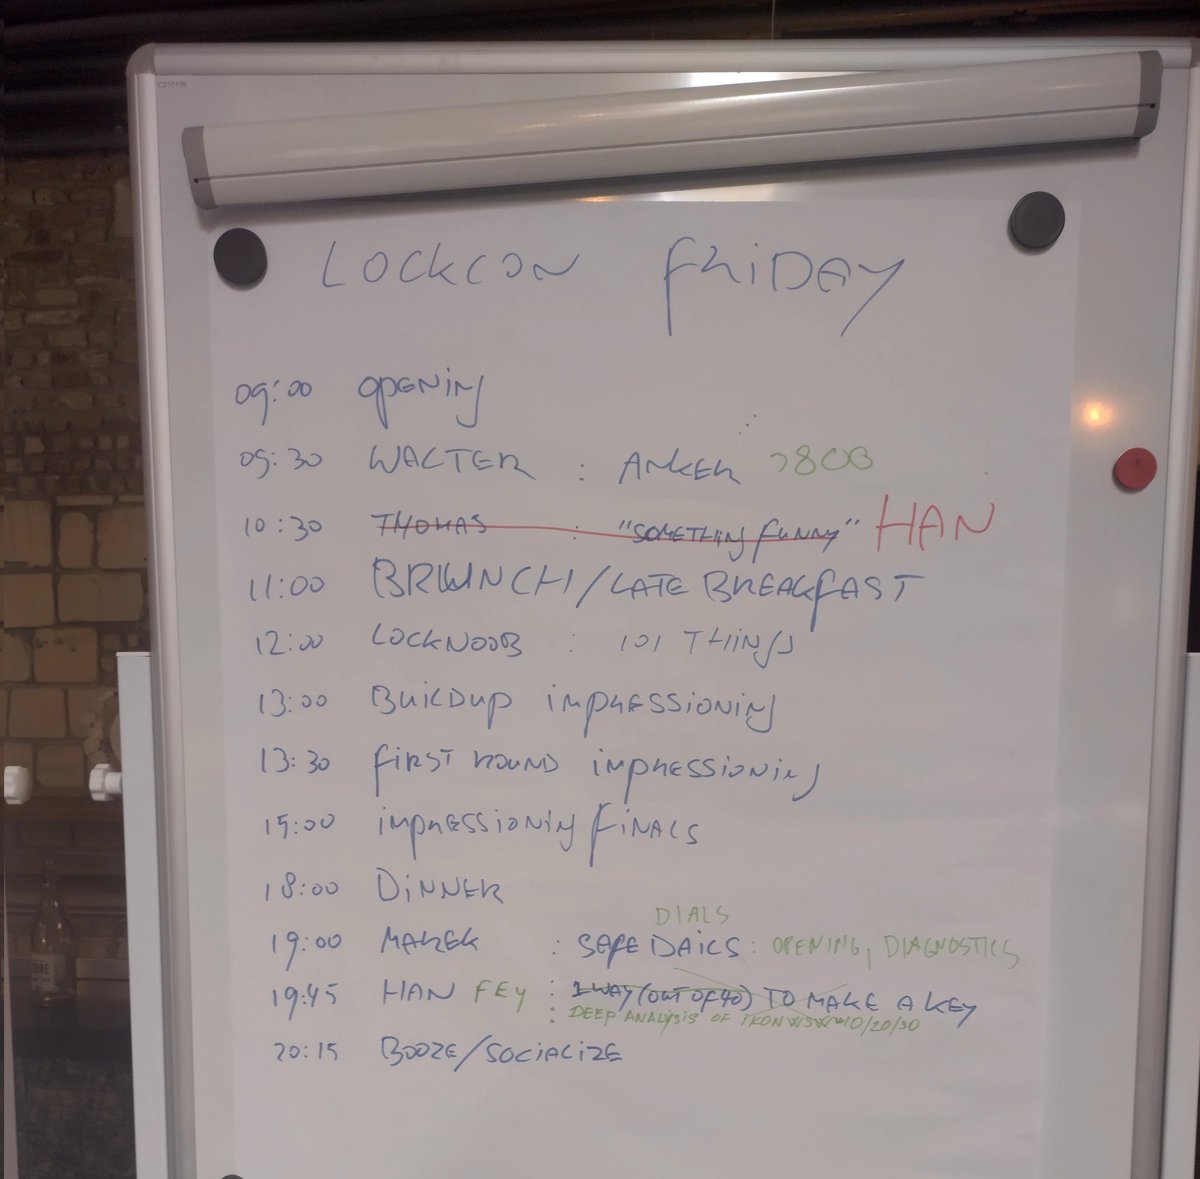 C210106
LOCKCON FRIDAY
09:00 OPENING
09:30 WALTER : ANKER 3800
10:30 THOMAS : "SOMETHING FUNNY" HAN
11:00 BRUNCH/LATE BREAKFAST
12:00 LOCKNOOB : 101 THINGS
13:00 BUILDUP IMPRESSIONING
13:30 FIRST ROUND IMPRESSIONING
15:00 IMPRESSIONING FINALS
18:00 DINNER
DIALS
19:00 MAREK : SAFE DAILS : OPENING, DIAGNOSTICS
19:45 HAN FEY : 1 WAY (OUT OF 40) TO MAKE A KEY
: DEEP ANALYSIS OF IKON 10/20/30
20:15 BOOZE/SOCIALIZE